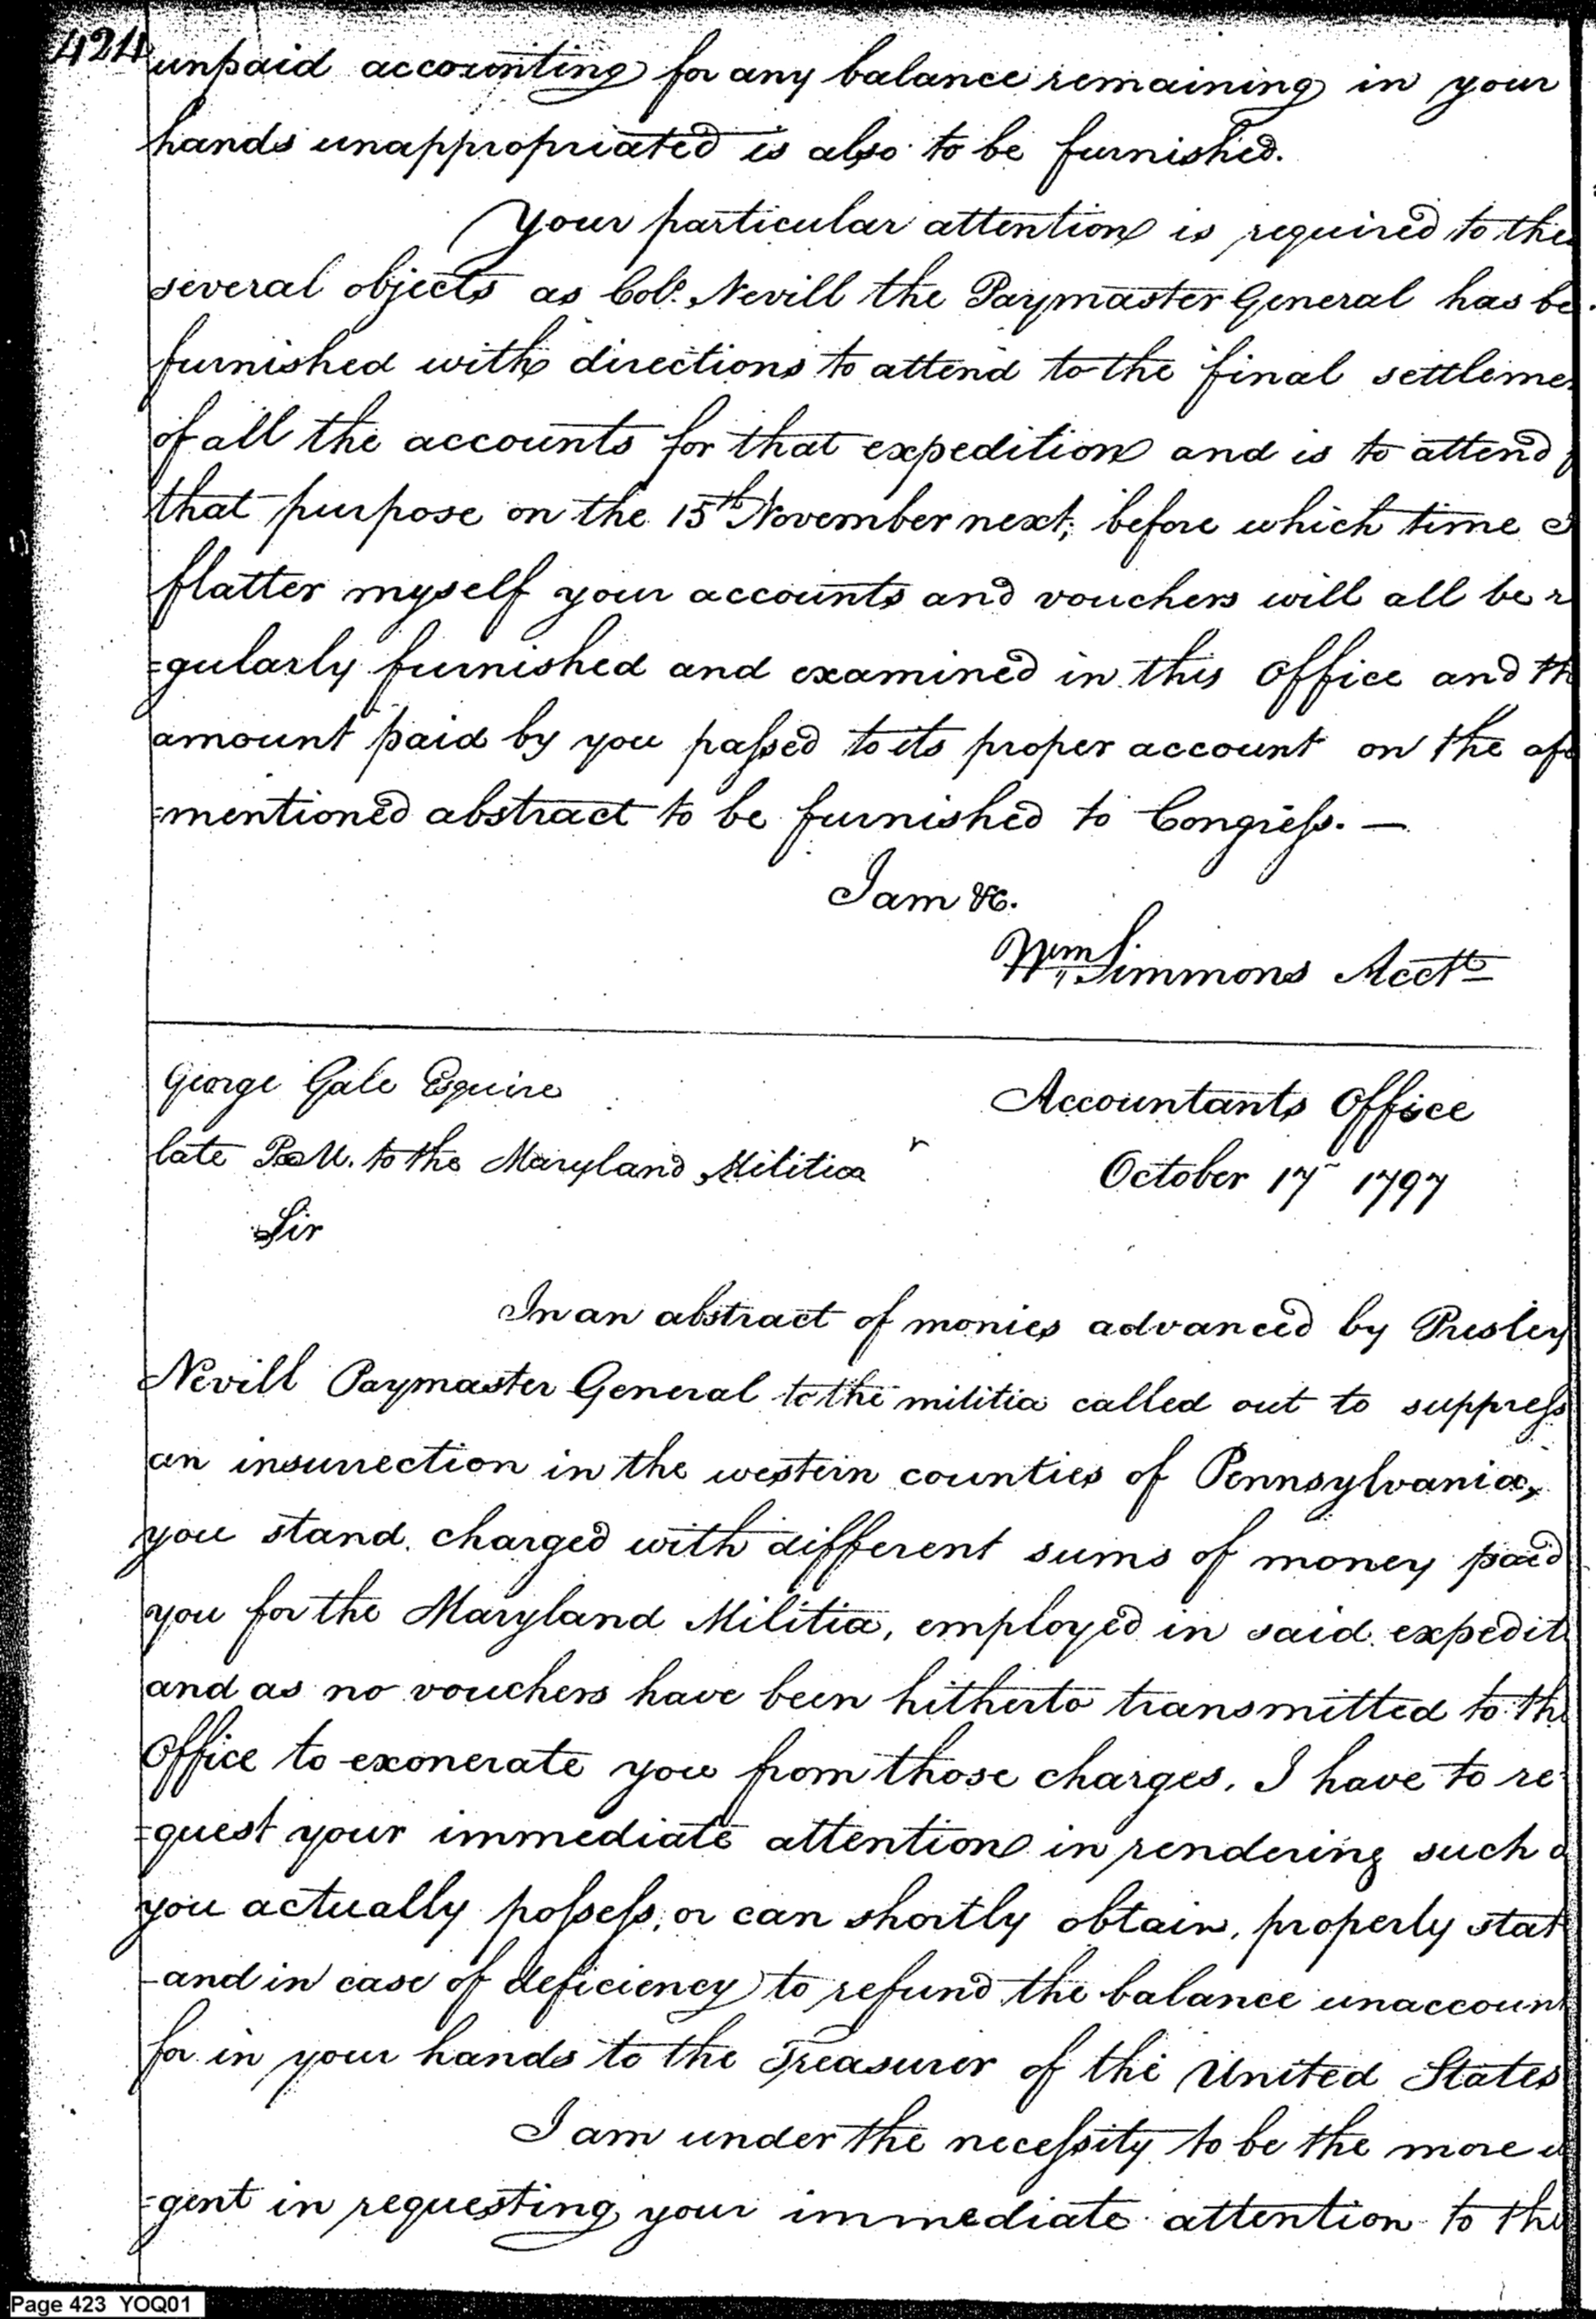 424
unpaid accounting for any balance remaining in your
hands unappropriated is also to be furnished.
Your particular attention is required to the
several objects as Colo. Nevill the Paymaster General has be
furnished with directions to attend to the final settleme
of all the accounts for that expedition and is to attend
that purpose on the 15th November next, before which time I
flatter myself your accounts and vouchers will all be r
=gularly furnished and examined in this Office and th
amount paid by you passed to its proper account on the afo
=mentioned abstract to be furnished to Congress. —
I am &c.
Wm Simmons Acctt
George Gale Esquire
late P. M. to the Maryland Militia
Accountants Office
October 17 1797
Sir
In an abstract of monies advanced by Presley
Nevill Paymaster General to the militia called out to suppress
an insurrection in the western counties of Pennsylvania,
you stand charged with different sums of money paid
you for the Maryland Militia, employed in said expedit
and as no vouchers have been hitherto transmitted to th
Office to exonerate you from those charges, I have to re=
=quest your immediate attention in rendering such a
you actually possess, or can shortly obtain, properly stat
and in case of deficiency to refund the balance unaccount
for in your hands to the Treasurer of the United States
I am under the necessity to be the more u
=gent in requesting your immediate attention to the
Page 423 YOQ01